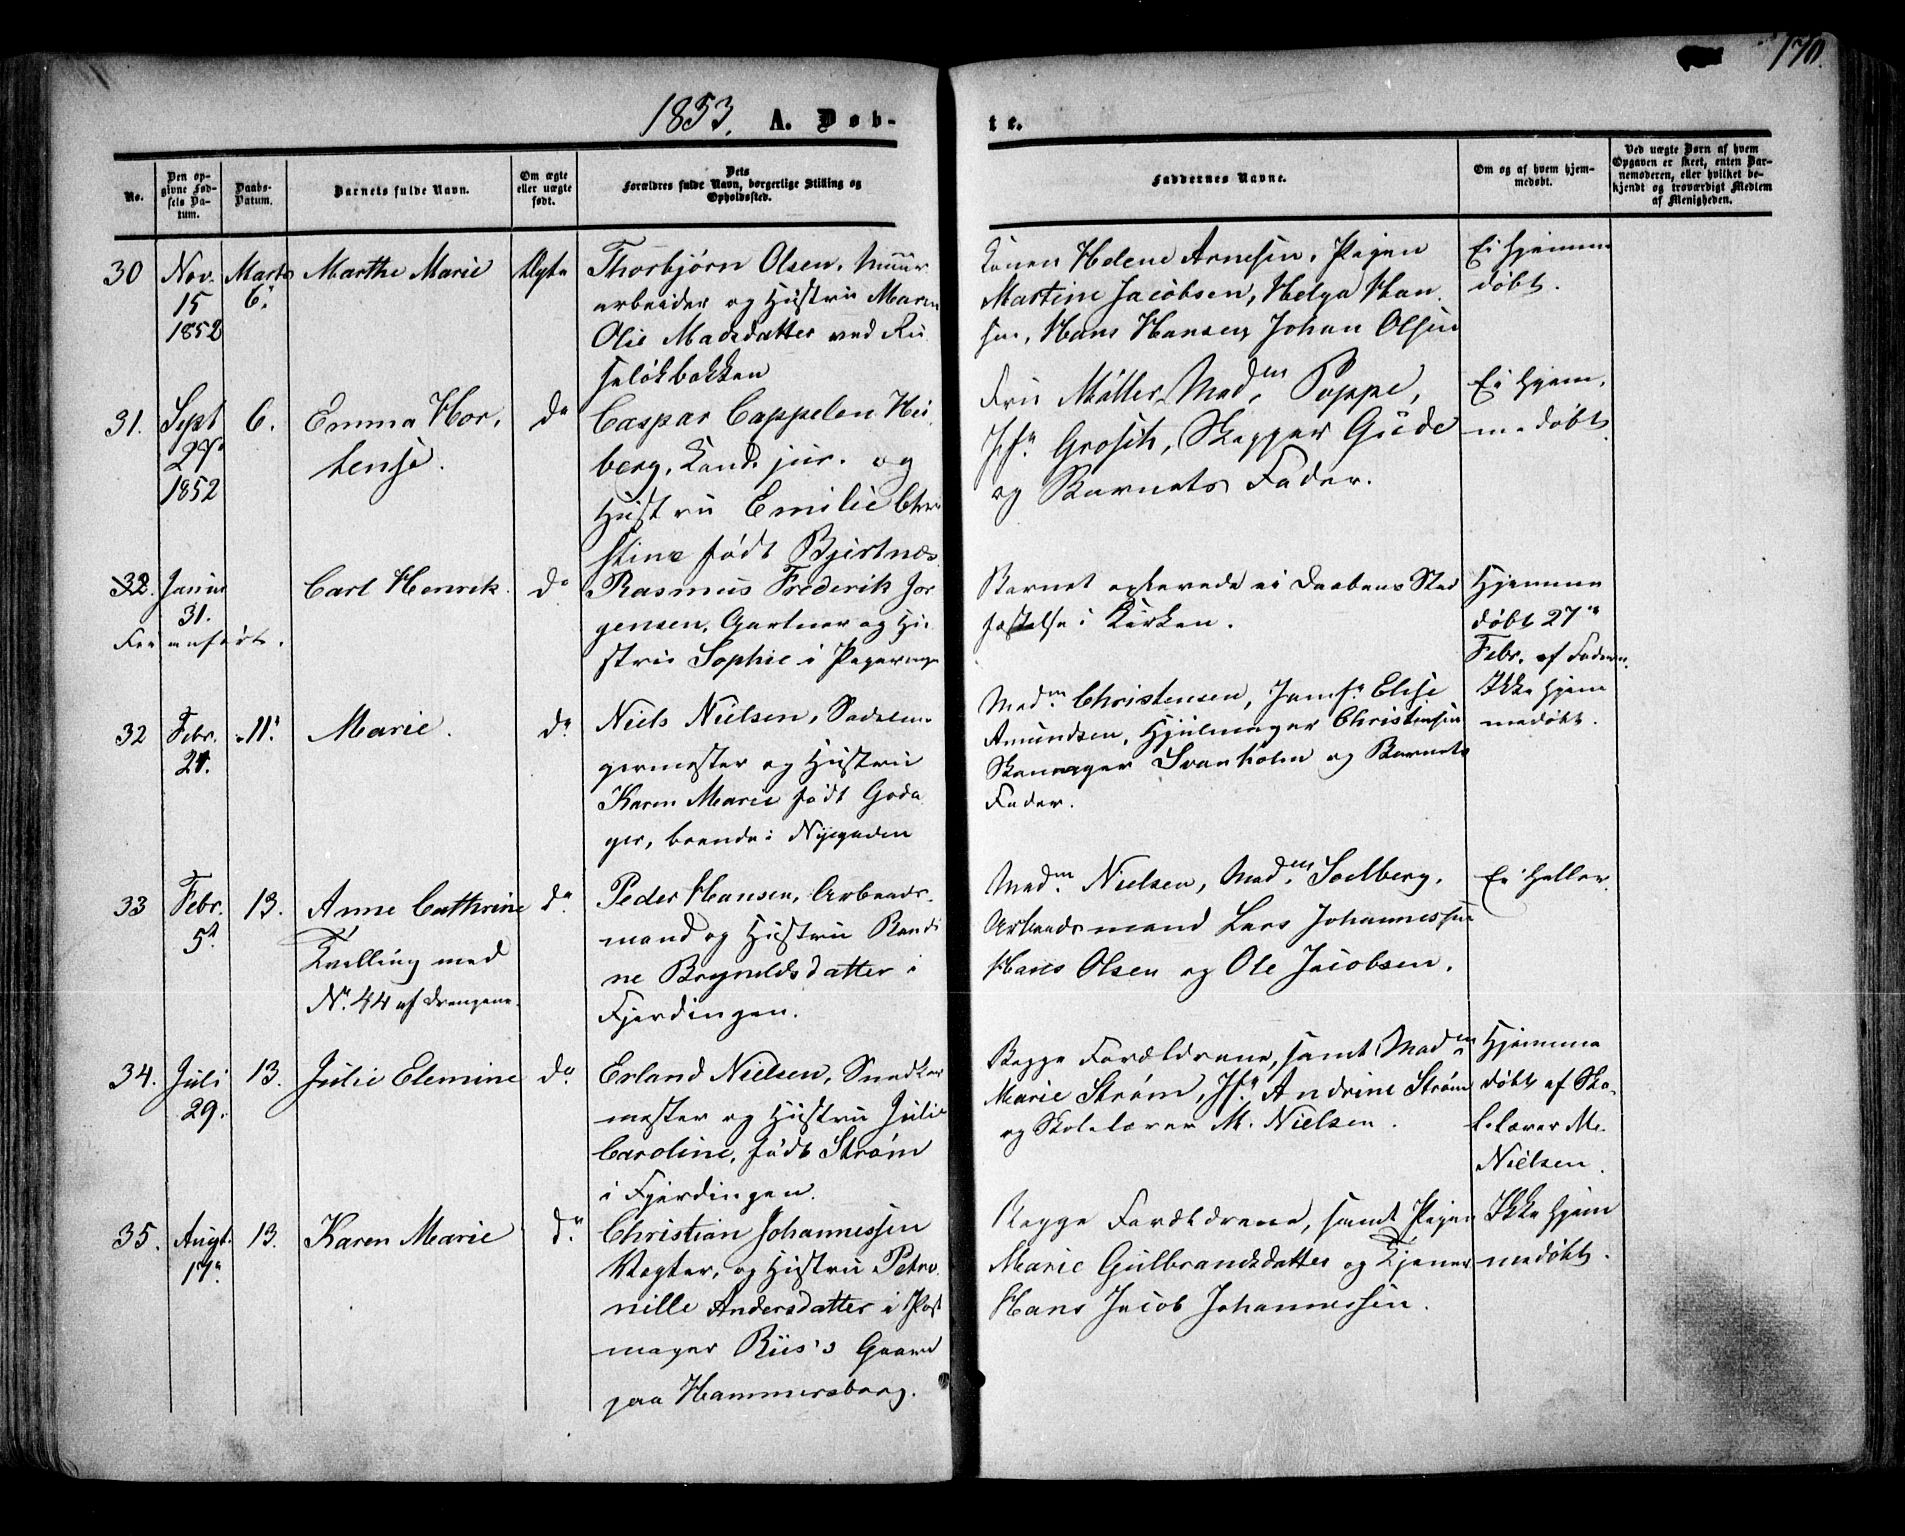 170.
1853. A. Døb-
te.
No.
Den op-
givne Fød-
sels Da-
tum.
Daabs-
Datum.
Barnets fulde Navn.
Om ægte
eller uægte
født.
Dets
Forældres fulde Navn, borgerlige Stilling og
Opholdssted.
Faddernes Navne.
Om og af hvem hjem-
medøbt.
Ved uægte Børn af hvem
Opgaven er skeet, enten Bar-
nemoderen, eller hvilket be-
kjendt og troværdigt Medlem
af Menigheden.
30
Nov.
15
1852
Marts
6.
Marthe Marie
Ægte
Thorbjørn Olsen, Muur
arbeider og Hustru Maren
Olie Madsdatter ved Ru
seløkbakken
Konen Helene Arnesen, Pigen
Martine Jacobsen, Helga Han
sen, Hans Hansen, Johan Olsen
Ei hjemme
døbt.
31.
Sept
27
1852
6.
Emma Hor,
tense.
do
Caspar Cappelen Hei
berg, Cand. jur. og
Hustru Emilie Chri
stine født Bjertnæs
Fru Møller, Madm Poppe,
Jfr. Grosch, Skipper Gude
og Barnets Fader.
Ei hjem,
medøbt
32.
Januar
31.
Fei anført.
Carl Henrik.
do
Rasmus Frederik Jør
gensen, Gartner og Hu
stru Sophie i Pegerenge
Barnet opfarede ei Daabens Stad
fæstelse i Kirken.
Hjemme
døbt 27de
Febr. af Faderen.
32
Febr.
21.
11.
Marie.
do
Niels Nielsen, Sadelma
germester og Hustru
Karen Marie født Goda
ger, boende i Nygaden
Madm Christensen, Jomfr. Elise
Amundsen, Hjulmager Christensen
Skomager Svanholm og Barnets
Fader.
Ikke hjem
medøbt.
33
Febr.
5t
13.
Anne Cathrine
Tvilling med
No. 44 af Drengene.
do
Peder Hansen, Arbeids.
mand og Hustru Randi
ne Bryneldsdatter i
Fjerdingen.
Madm Nielsen, Madm Soelberg,
Arbeidsmand Lars Johannessen
Hans Olsen og Ole Jacobsen.
Ei heller.
34.
Juli
29.
13.
Julie Elemine
do
Erland Nielsen, Snedker
mester og Hustru Julie
Caroline, født Strøm
i Fjerdingen.
Begge Forældrene, samt Madm
Marie Strøm, Jfr. Andrine Strøm
og Skolelærer M. Nielsen.
Hjemme
døbt af Sko-
lelærer M.
Nielsen.
35.
Augt.
17.
13.
Karen Marie
do
Christian Johannessen
Vægter, og Hustru Petro
nille Andersdatter i Post
mager Riis's Gaard
paa Hammersborg.
Begge Forældrene, samt Pigen
Marie Gulbrandsdatter og Tjener
Hans Jacob Johannessen.
Ikke hjem
medøbt.